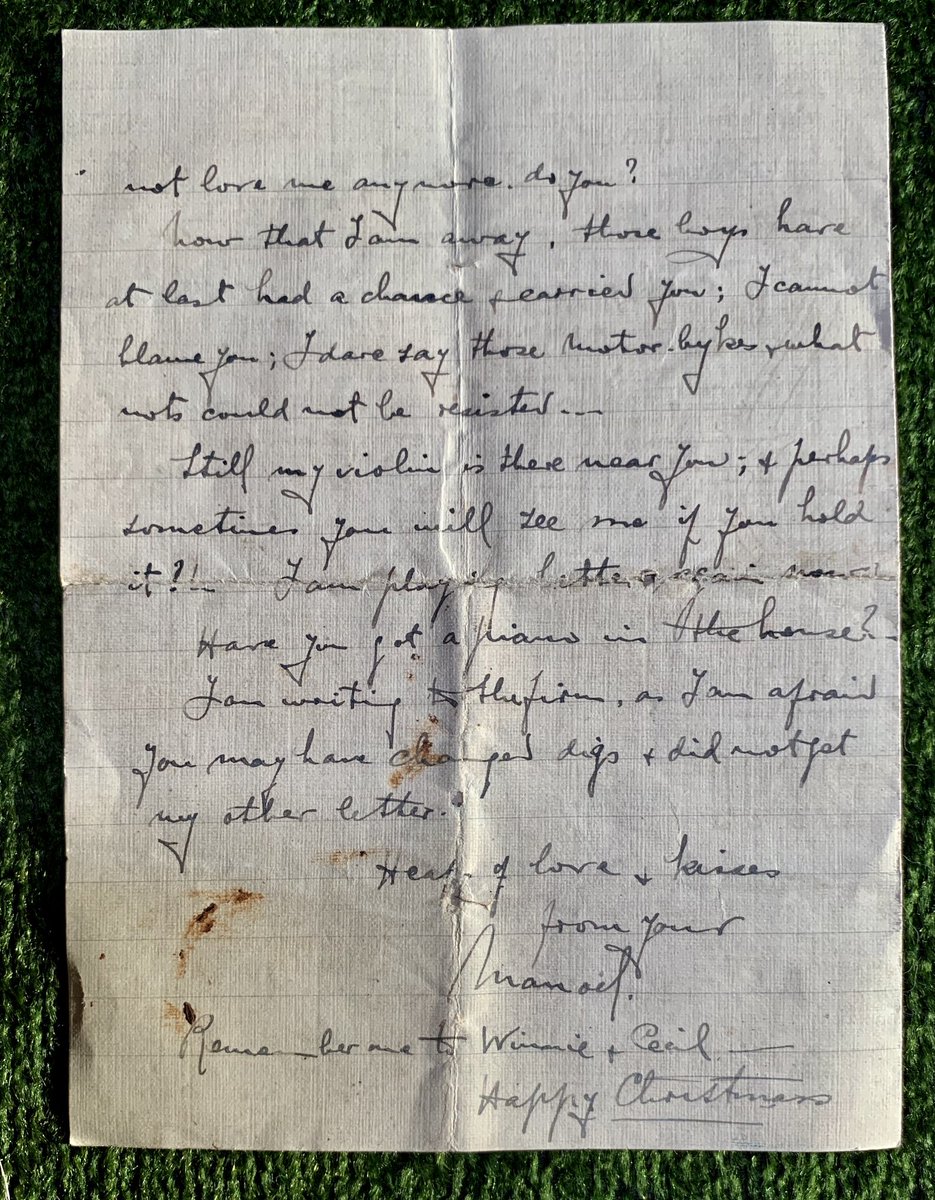 not love me anymore. do you?
Now that I am away, those boys have
at last had a chance & carried you; I cannot
blame you; I dare say those motor-bykes & what
nots could not be resisted ---
Still my violin is there near you; & perhaps
sometimes you will see me if you hold
it?! -- I am playing better again now -
Have you got a piano in the house? -
I am writing to the firm, as I am afraid
you may have changed digs & did not get
my other letter.
Heaps of love & kisses
from your
Manoel.
Remember me to Winnie & Cecil —
Happy Christmas